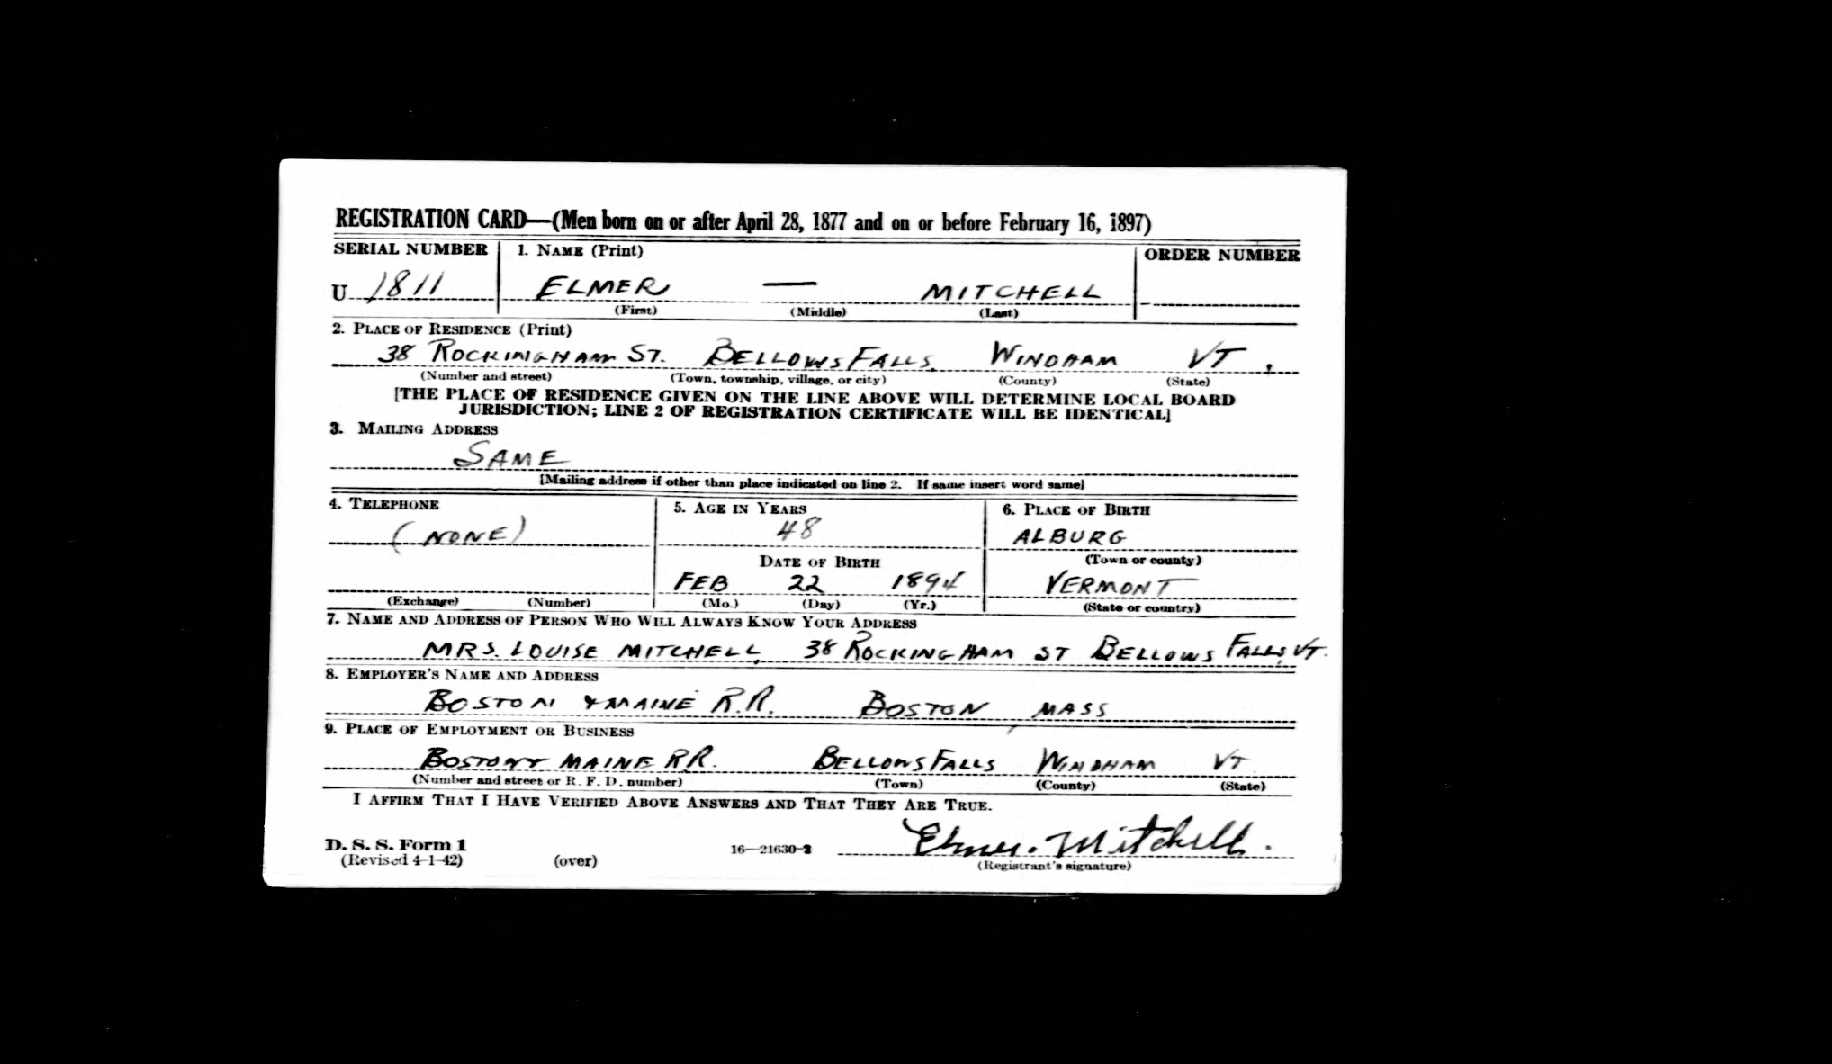 REGISTRATION CARD—(Men born on or after April 28, 1877 and on or before February 16, 1897)
SERIAL NUMBER 1. NAME (Print) ORDER NUMBER
U 1811 ELMER — MITCHELL
(First) (Middle) (Last)
2. PLACE OF RESIDENCE (Print)
38 ROCKINGHAM ST. BELLOWS FALLS WINDHAM VT,
(Number and street) (Town, township, village, or city) (County) (State)
[THE PLACE OF RESIDENCE GIVEN ON THE LINE ABOVE WILL DETERMINE LOCAL BOARD
JURISDICTION; LINE 2 OF REGISTRATION CERTIFICATE WILL BE IDENTICAL]
3. MAILING ADDRESS
SAME
[Mailing address if other than place indicated on line 2. If same insert word same]
4. TELEPHONE 5. AGE IN YEARS 6. PLACE OF BIRTH
(NONE) 48 ALBURG
DATE OF BIRTH (Town or county)
FEB 22 1894 VERMONT
(Exchange) (Number) (Mo.) (Day) (Yr.) (State or country)
7. NAME AND ADDRESS OF PERSON WHO WILL ALWAYS KNOW YOUR ADDRESS
MRS. LOUISE MITCHELL 38 ROCKINGHAM ST BELLOWS FALLS, VT.
8. EMPLOYER'S NAME AND ADDRESS
BOSTON & MAINE R.R. BOSTON MASS
9. PLACE OF EMPLOYMENT OR BUSINESS
BOSTON & MAINE RR. BELLOWS FALLS WINDHAM VT
(Number and street or R. F. D. number) (Town) (County) (State)
I AFFIRM THAT I HAVE VERIFIED ABOVE ANSWERS AND THAT THEY ARE TRUE.
Elmer. Mitchell.
D. S. S. Form 1 16—21630-2
(Revised 4-1-42) (over) (Registrant's signature)